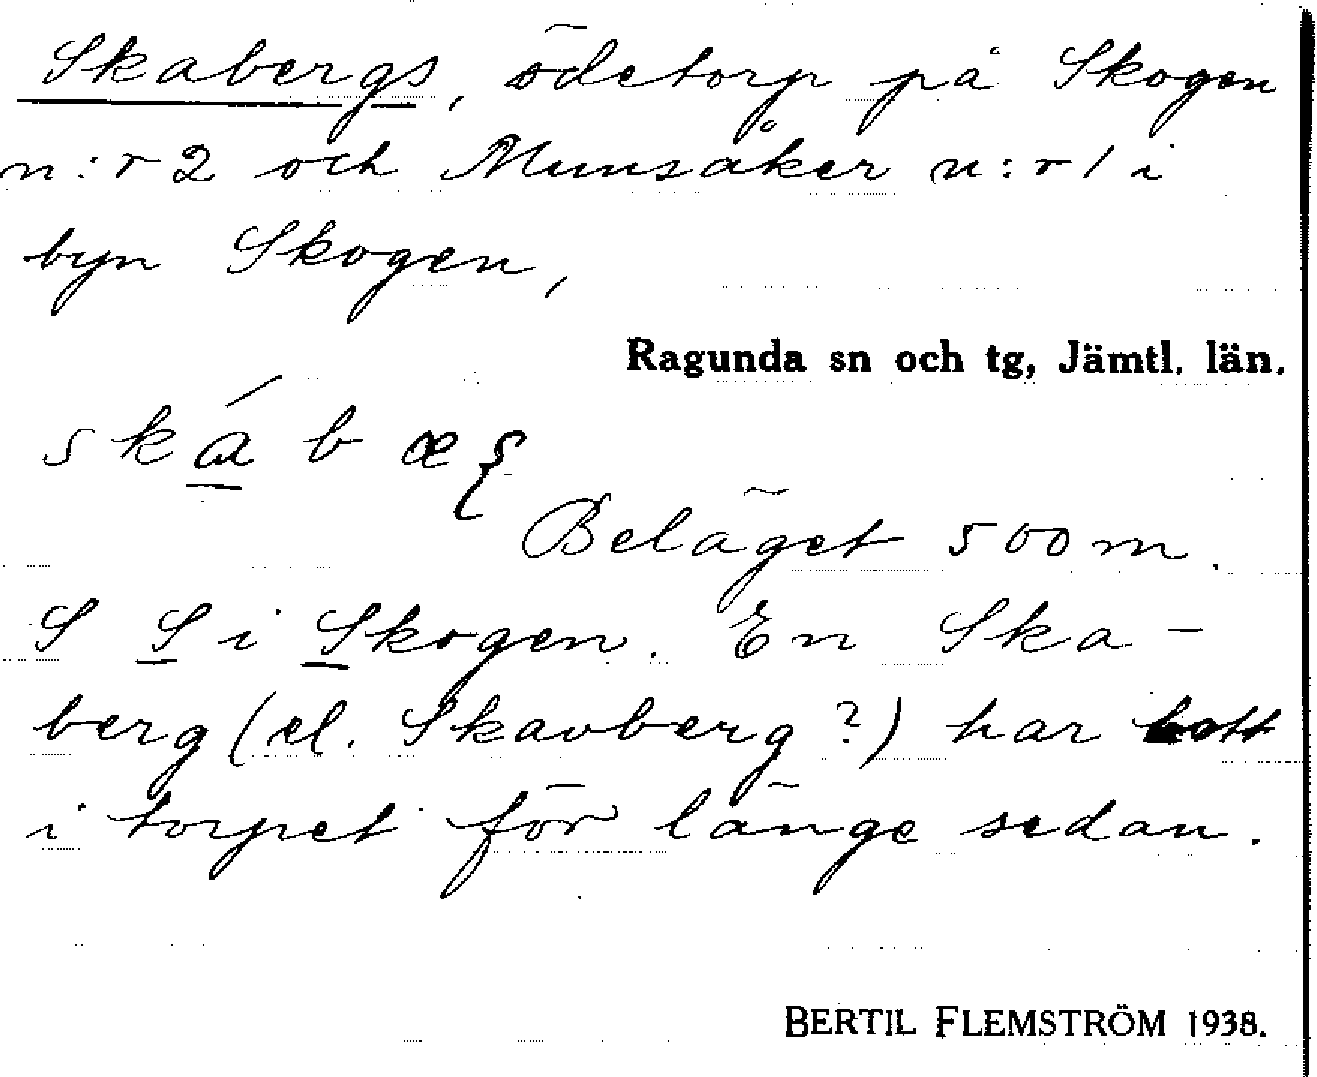 Skabergs, ödetorp på Skogen
n:r 2 och Munsåker n:r 1 i
byn Skogen,
Ragunda sn och tg, Jämtl. län.
Beläget 500 m.
S S i Skogen. En Ska-
berg (el. Skavberg?) har bott
i torpet för länge sedan.
BERTIL FLEMSTRÖM 1938.